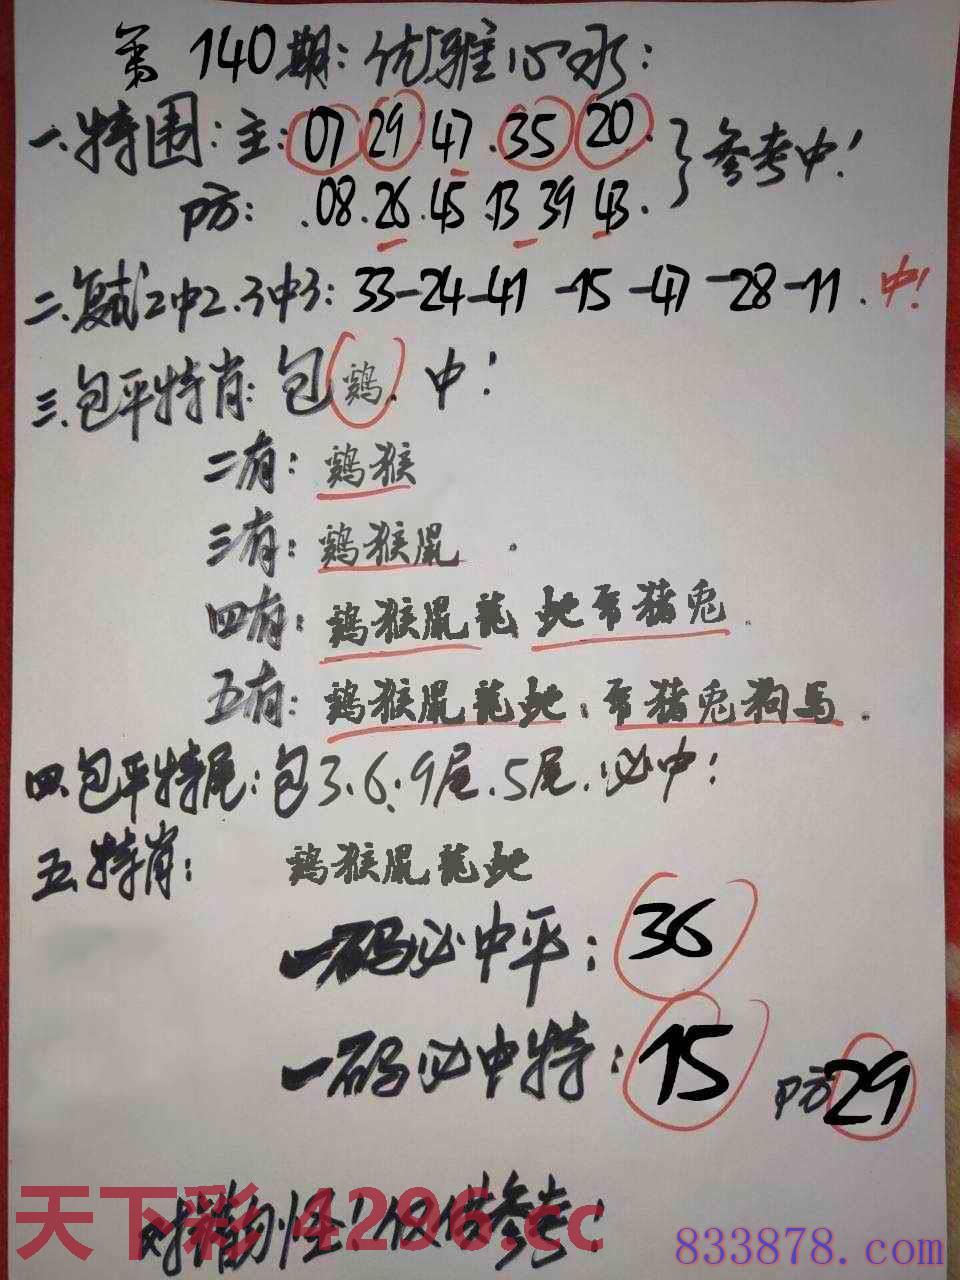 第140期：优雅心水：
一.特围：主：07 29 47.35 20. 参考中！
防：.08.26.45.13 39 43.
二.复试2中2.3中3：33-24-41-15-47-28-11.中！
三.包平特肖：包鸡.中！
二有：鸡猴
三有：鸡猴鼠.
四有：鸡猴鼠龙 蛇 猪兔.
五有：鸡猴鼠龙蛇. 猪兔狗马.
四.包平特尾：包3.6.9尾.5尾.必中！
五.特肖：鸡猴鼠龙蛇
一码必中平：36
一码必中特：15 防29
天下彩 4296.cc
仅供参考！
833878.com